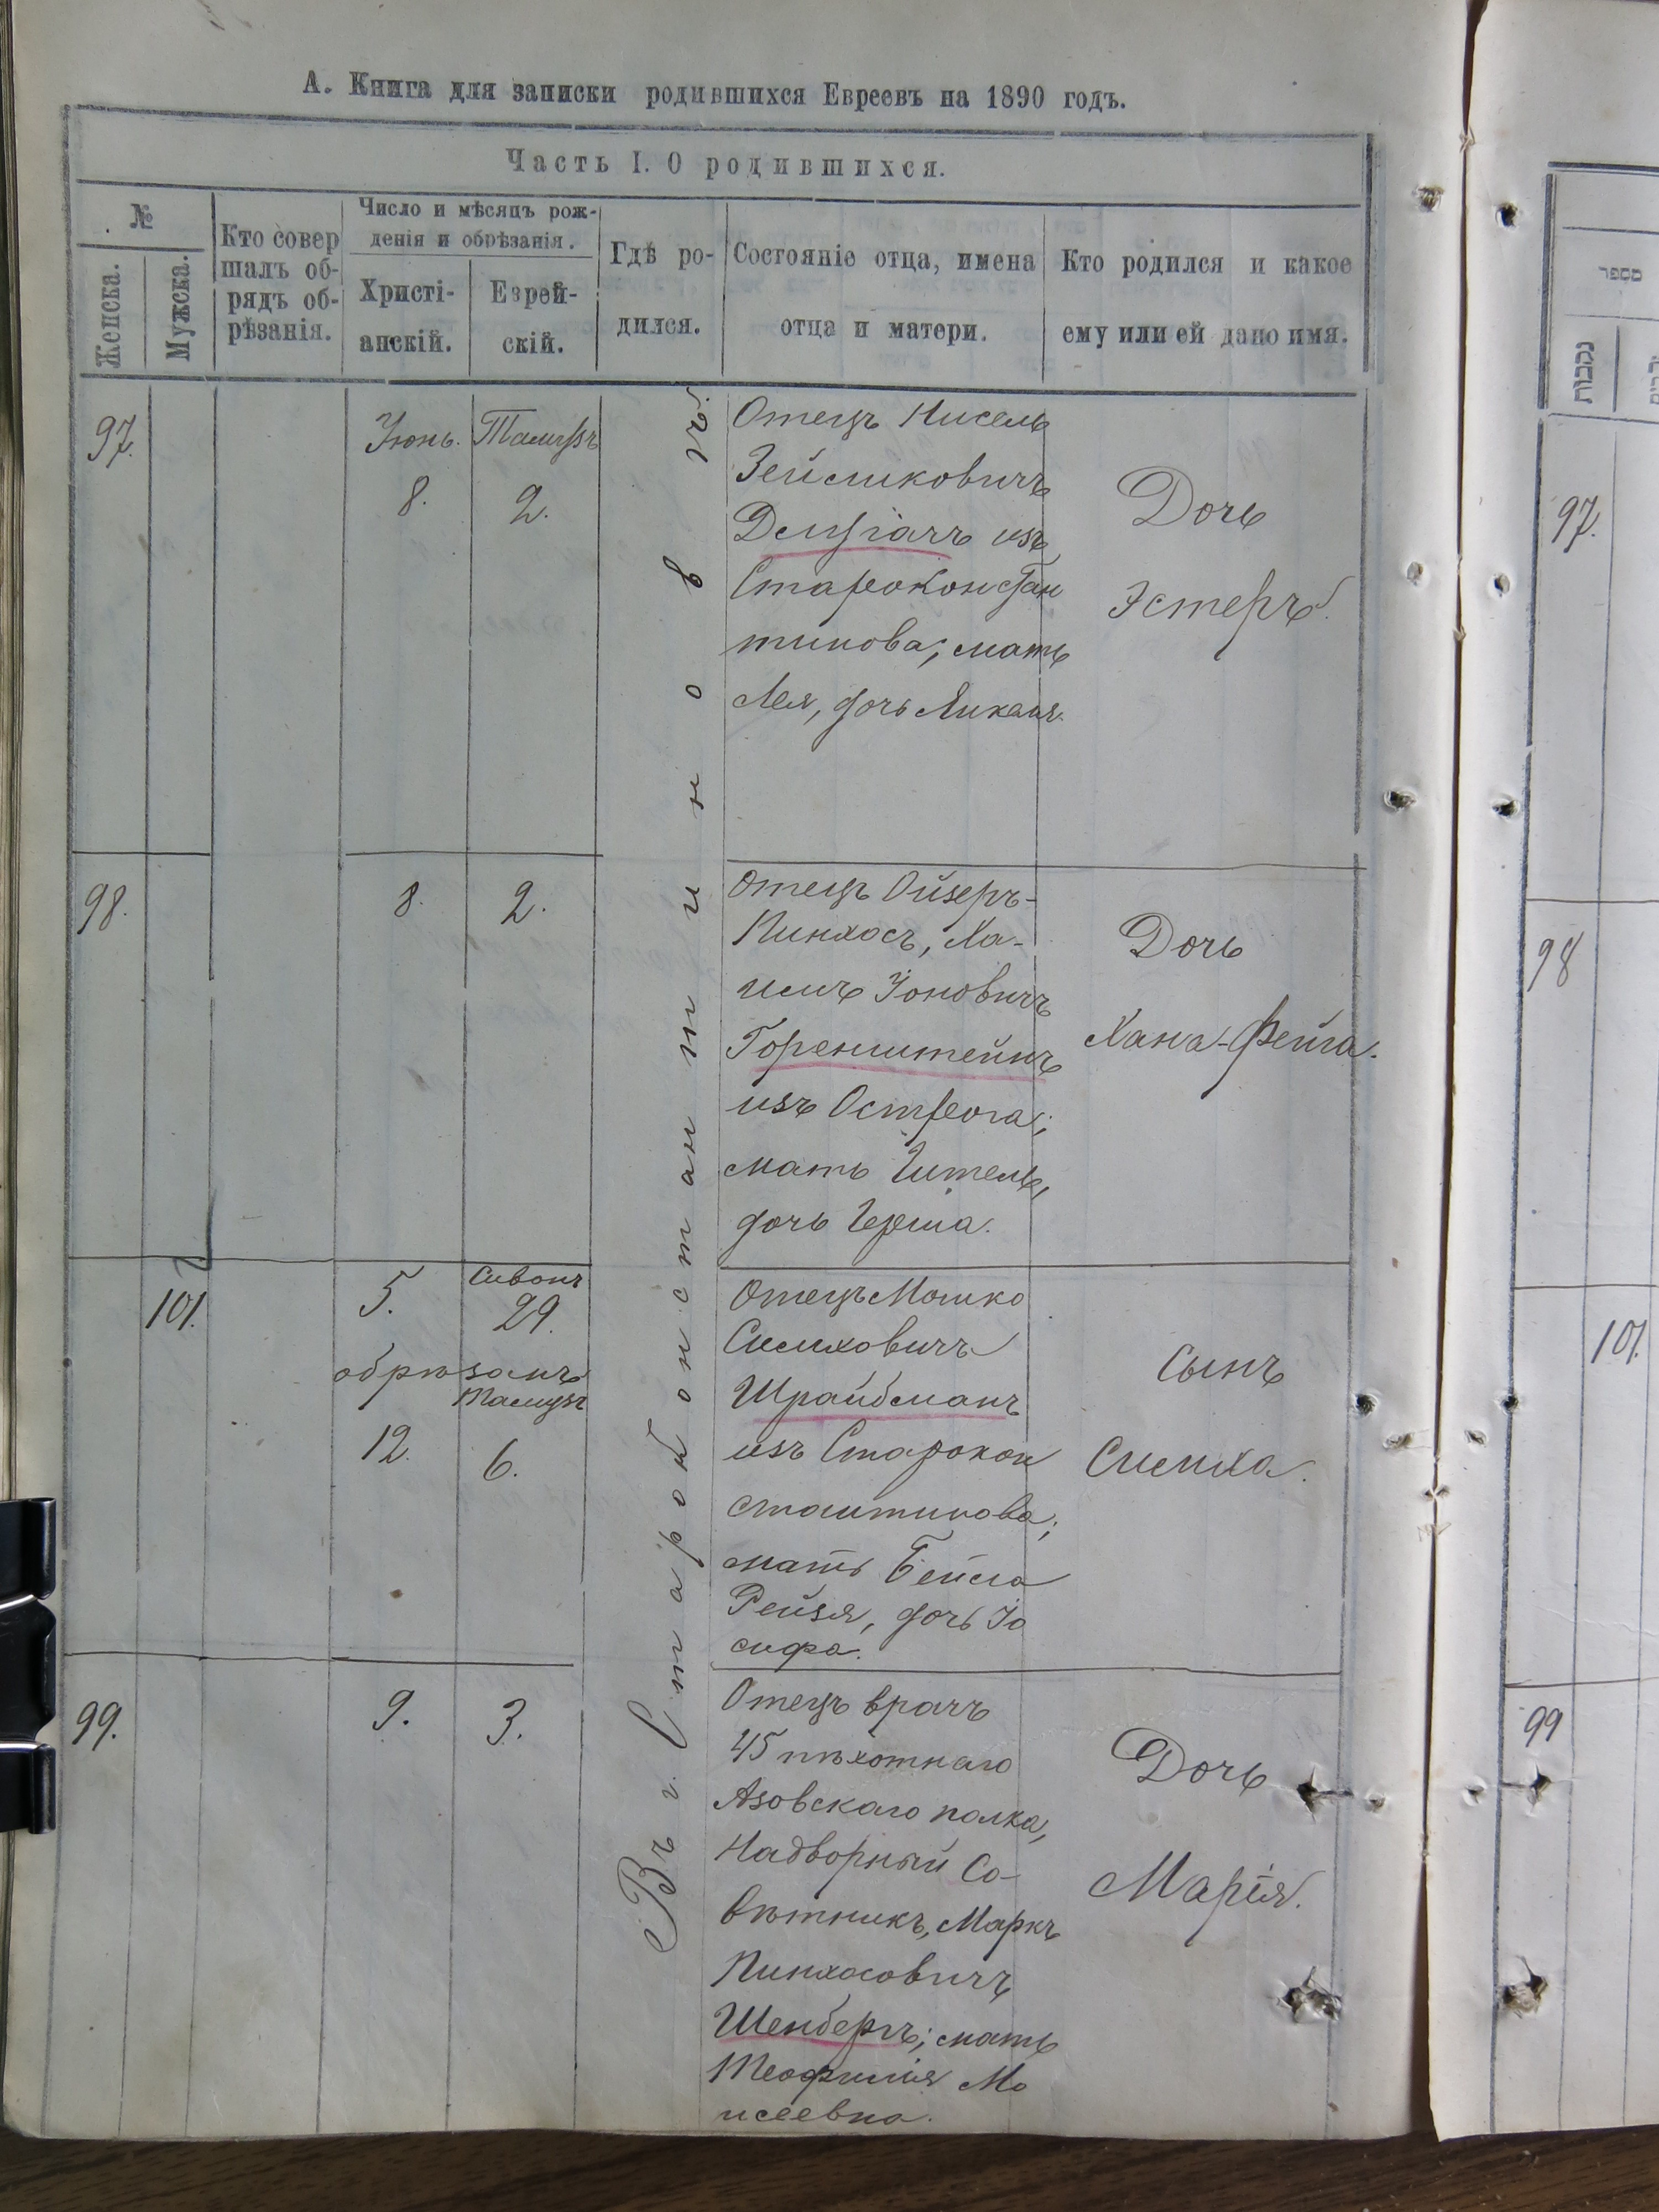 А. Книга для записки родившихся Евреевъ на 1890 годъ.
Часть I. О родившихся.
№
Женска.
Мужска.
Кто совер
шалъ об-
рядъ об-
рѣзанія.
Число и мѣсяцъ рож-
денія и обрѣзанія.
Христі-
анскій.
Еврей-
скій.
Гдѣ ро-
дился.
Состояніе отца, имена
отца и матери.
Кто родился и какое
ему или ей дано имя.
Въ г. Староконстантиновѣ.
97.
Іюнь.
8.
Тамузъ
2.
Отецъ Нисель
Зейсиковичъ
изъ
Староконстан
тинова; мать
Лея, дочь
Дочь
Эстеръ.
98.
8.
2.
Отецъ Ойзеръ-
Пинхасъ, Ха-
имъ Іоновичъ
Горенштейнъ
изъ Острога;
мать Гитель,
дочь Герша.
Дочь
Хана-Фейга.
101.
5.
Сиванъ
29.
обрѣзанъ
Тамузъ
12.
6.
Отецъ Мошко
Симховичъ
Шрайбманъ
изъ Старокон
стантинова;
мать Бейла
Рейзя, дочь Іо
сифа.
Сынъ
Симха.
99.
9.
3.
Отецъ врачъ
45 пѣхотнаго
Азовскаго полка,
Надворный Со-
вѣтникъ, Маркъ
Пинхасовичъ
Шенбергъ; мать
Теофилія Мо
исеевна.
Дочь
Марія.
מספר
נקבות
97.
98
101.
99